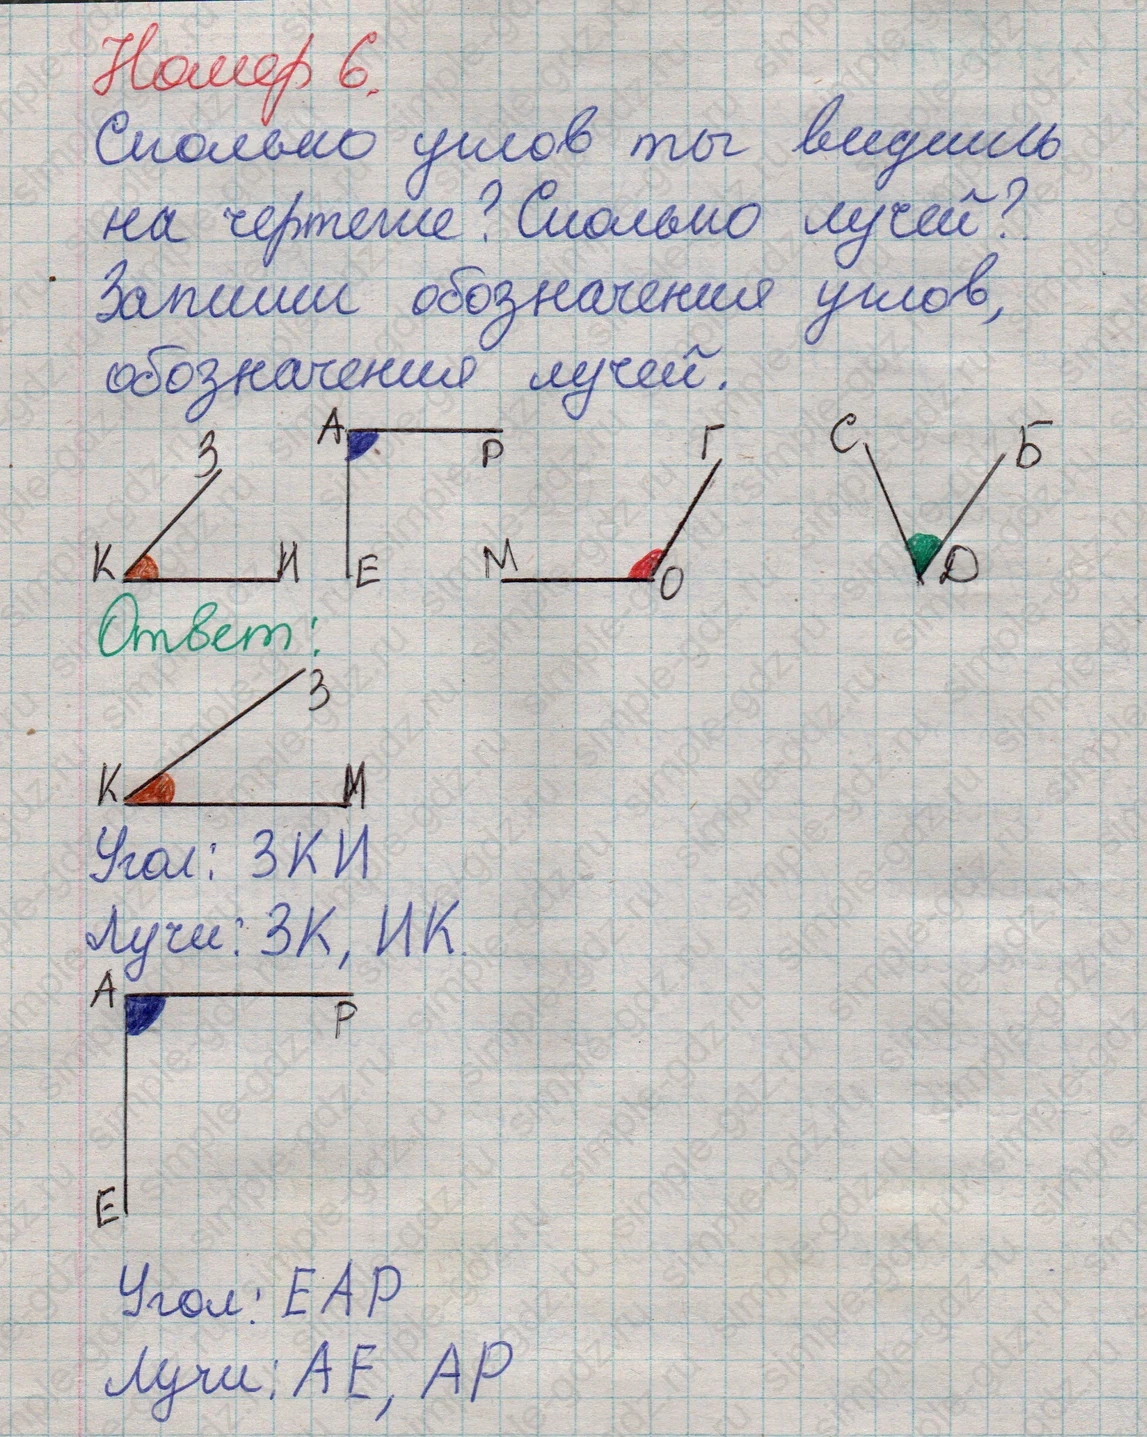 Номер 6.
Сколько углов ты видишь
на чертеже? Сколько лучей?
Запиши обозначения углов,
обозначения лучей.
З
К И
А Р
Е
Г
М О
С Б
D
Ответ:
З
К И
Угол: ЗКИ
Лучи: ЗК, ИК.
А
Р
Е
Угол: ЕАР
Лучи: АЕ, АР
simple-gdz.ru